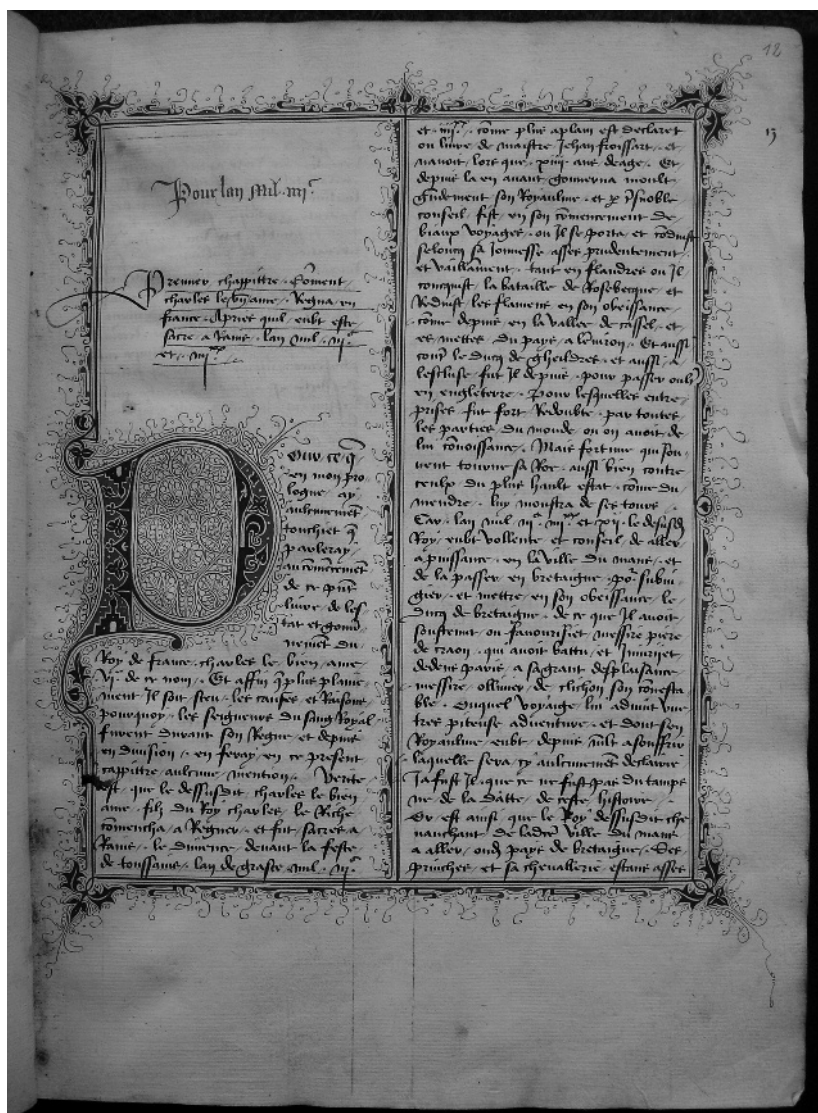 12
13
Pour lan Mil iiijc
Premier chappittre. Coment
charles le bien ame. Regna en
france. Apries quil eubt este
sacre a Rains. lan mil. iijc
et. iiijxx.
Our ce q̄
en mon pro
logue ay
aulcunement
touchiet q̄
parleray.
au comencement
de ce pnt
livre. de les
tat et gouv̄
nement du
Roy de france. charles le bien ame.
vje de ce nom. Et affin q̄ plus plaine
ment Il soit sceu. les causes et Raisons
pourquoy. les seigneurs du sang Royal
furent durant son Regne. et depuis
en division. en feray. en ce present
cappittre aulcune mention. Verite
est. que le dessusdit. charles le bien
ame. filz du Roy charles. le Riche
comencha. a Regner. et fut sacres a
Rains. le dimence devant la feste
de toussains. lan de grasce mil. iijc
et. iiijxx. come plus aplain est declaret
ou livre de maistre Jehan froissart. et
navoit. lors que. xiiij. ans deage. Et
depuis la en avant. gouverna moult
grandement son Royaulme. et par tresnoble
conseil. fist. en son comencement de
biaux voyages. ou Il se porta. et coduist
seloncq sa Jonnesse asses prudentement.
et vaillament. tant en flandres ou Il
concquist. la bataille de Rosebecque. et
Reduist. les flamens en son obeissance.
come depuis en la vallee de cassel. et
es mettes. du pays. a lenvion. Et aussi
contre le Ducq de gheldres. et aussi. a
lescluse fut Il depuis. pour passer oultre
en engleterre. Pour lesquelles entre
prises fut fort Redoubte. par toutes.
les parties du monde. ou on avoit. de
lui conoissance. Mais fortune qui sou
vent tourne sa Roe. aussi bien contre
ceulx du plus hault estat. come du
mendre. luy monstra de ses tours.
Car. lan mil. iijc. iiijxx. et xij. le desusd
Roy. eubt vollente et conseil de aller
a puissance. en la ville du mans. et
de la passer en bretaigne. por subiu
gier. et mettre. en son obeissance. le
Ducq de bretaigne. de ce que Il avoit
soustenut. ou favourisiet messire piere
de craon. qui avoit battu. et Iniuriet
dedens paris. a sa grant desplaisance.
messire. ollivier. de clichon son conesta
ble. Ouquel voyaige. lui advint une
tres piteuse adventure. et dont son
Royaulme. eubt. depuis. mlt asouffrir
laquelle sera cy aulcunement declaree
Ja fust Il. que ce ne fust pas du tamps
ne de la datte. de ceste histoire.
Or est ainsi. que le Roy dessusdit che
vauchant. de ladite ville du mans.
a aller. oudit pays de bretaigne. Ses
princhez. et sa chevallerie estans asses